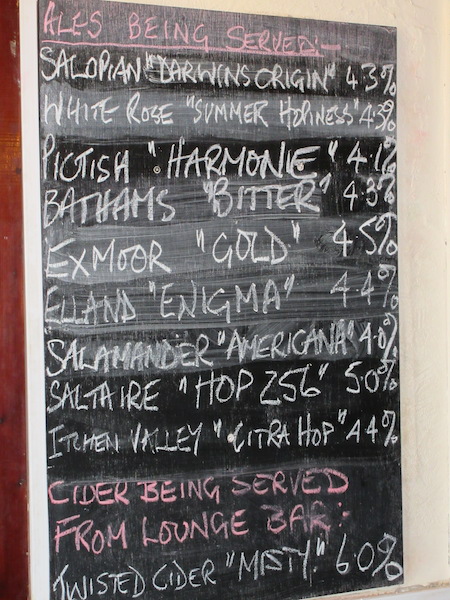 ALES BEING SERVED:-
SALOPIAN "DARWINS ORIGIN" 4.3%
WHITE ROSE "SUMMER HOPINESS" 4.3%
PICTISH "HARMONIE" 4.1%
BATHAMS "BITTER" 4.3%
EXMOOR "GOLD" 4.5%
ELLAND "ENIGMA" 4.4%
SALAMANDER "AMERICANA" 4.0%
SALTAIRE "HOP 256" 5.0%
ITCHEN VALLEY "CITRA HOP" 4.4%
CIDER BEING SERVED
FROM LOUNGE BAR:
TWISTED CIDER "MISTY" 6.0%